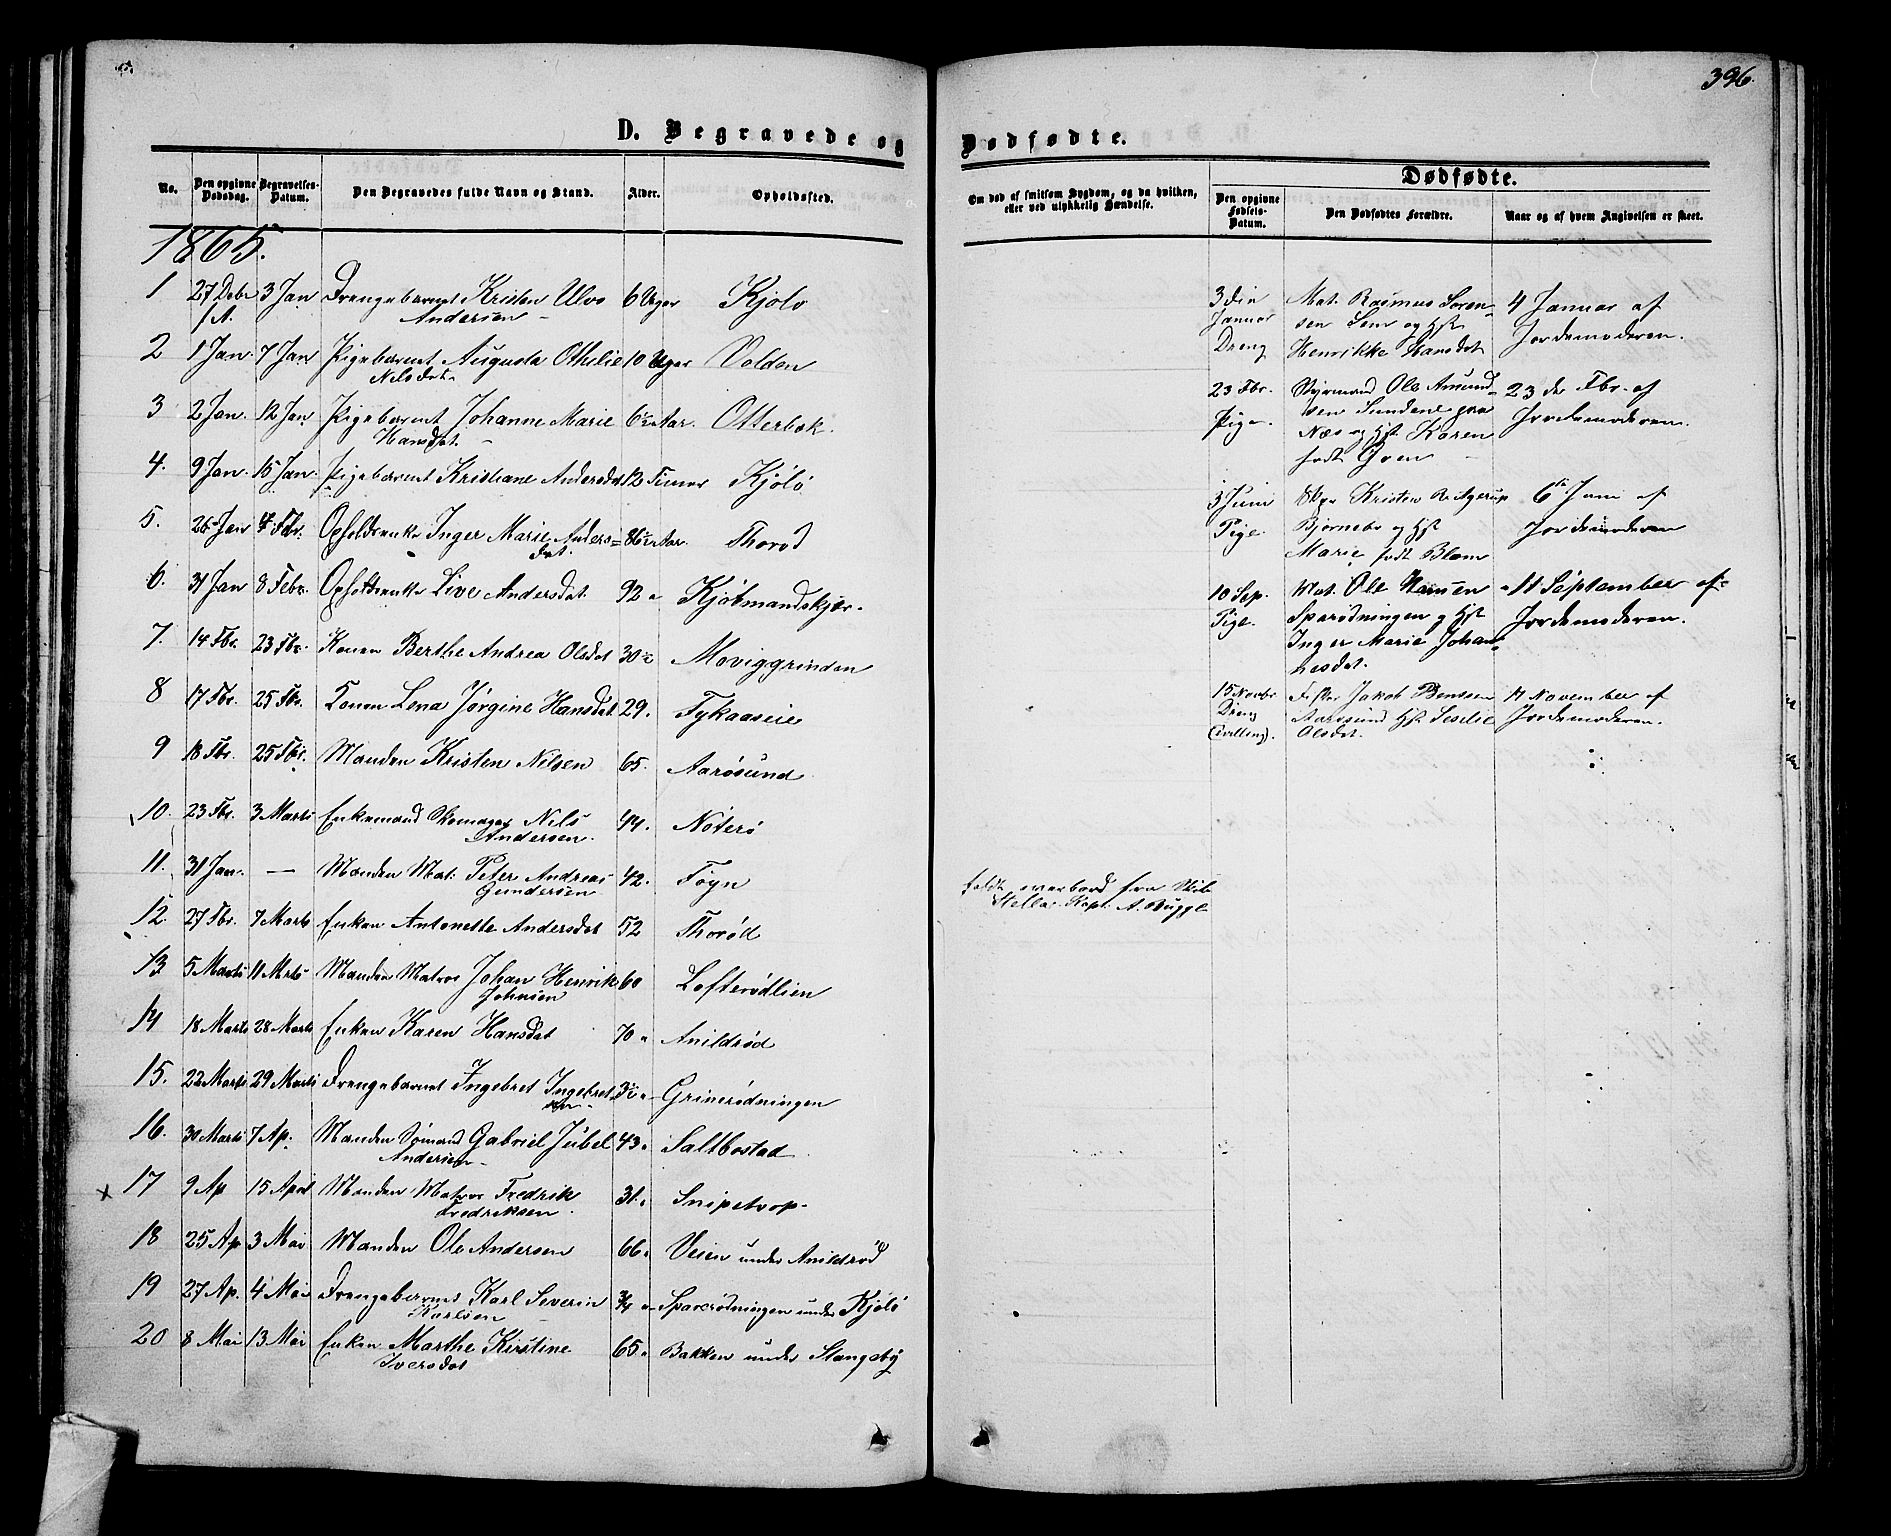 396.
D. Begravede og Dødfødte.
No. Den opgivne Dødsdag. Begravelses-Datum. Den Begravedes fulde Navn og Stand. Alder. Opholdssted.
Om død af smitsom Sygdom, og da hvilken, eller ved ulykkelig Hændelse.
Dødfødte.
Den opgivne Fødsels-Datum. Den Dødfødtes Forældre. Naar og af hvem Angivelsen er skeet.
1865.
1 27 Debr 3 Jan Drengebarnet Kristen Ulvo 6 Uger Kjølø
f A. Andersen
2 1 Jan 7 Jan Pigebarnet Augusta Othilie 10 Uger Volden
Nilsdat.
3 2 Jan. 12 Jan Pigebarnet Johanne Marie 6½ Aar. Otterbæk.
Hansdat.
4. 9 Jan. 15 Jan. Pigebarnet Kristiane Andersdat 12 Timer Kjølø
5. 26 Jan 4 Fbr. Opholdsenke Inger Marie Anders= 86½ Aar. Thorød
dat.
6. 31 Jan 8 Febr. Opholdsenke Live Andersdat. 92 " Kjøbmandskjær.
7. 14 Fbr. 23 Fbr. Konen Berthe Andrea Olsdat 30½ Moviggrinden
8 17 Fbr. 25 Fbr. Konen Lena Jørgine Hansdat 29. Fykaaseie
9 18 Fbr. 25 Fbr. Manden Kristen Nilsen 65. Aarøsund
10. 23 Fbr. 3 Marts Enkemand Skomager Nils 44. Nøterø
Andersen.
11. 31 Jan. — Manden Mat. Peter Andreas 42. Føyn
Gundersen
12. 27 Fbr. 7 Marts Enken Antonette Andersdat 52 Thorød
13 5 Marts 11 Mrts Manden Matros Johan Henrik 60 Lofterødlien
Johnsen
14 18 Marts 28 Marts Enken Karen Hansdat 70 " Anildrød
15. 22 Marts 29 Marts Drengebarnet Ingebret Ingebret 3½ " Grinerødningen
sen
16. 30 Marts 7 Ap. Manden Sømand Gabriel Jubel 43 " Saltbostad
Andersen
x 17 9 Ap 15 April Manden Matros Fredrik 31. " Snipetrop
Fredriksen.
18 25 Ap 3 Mai Manden Ole Andersen 66 " Veien under Anildrød
19 27 Ap. 4 Mai Drengebarnet Karl Severin ¾ " Sparerødningen under Kjølø
Karlsen
20 8 Mai 13 Mai Enken Marthe Kirstine 65 " Bakken under Stangeby
Iversdat
faldt overbord fra Skib
Stella. Kapt. A. Bugge
3 die Mat. Rasmus Soren- 4 Januar af
Januar sen Sem og Hst Jordemoderen.
Dreng Henrikke Hansdat
23 Fbr. Styrmand Ole Amund- 23 de Fbr. af
Pige. sen Sundene paa Jordemoderen.
Næs og Hst. Karen
født Gven
3 Juni Skpr Kristen B. Agerup 6te Juni af
Pige. Bjørnebo og Hst Jordemoderen
Marie født Blom
10 Sep. Mat. Ole Hansen 11 September af
Pige. Sparødningen og Hst Jordemoderen.
Inger Marie Johan
nesdat.
15 Novbr Jakob Bentsen 17 November af
Dreng Aarøsund Hst Seselie Jordemoderen.
(tvilling). Olsdat.